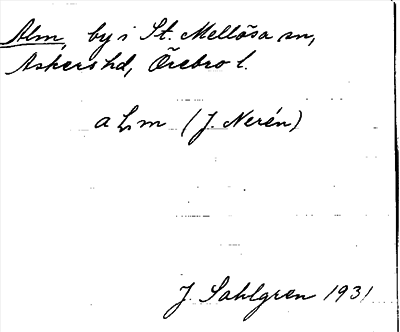 Alm, by i St. Mellösa sn,
Askers hd, Örebro l.
(J. Nerén)
J. Sahlgren 1931